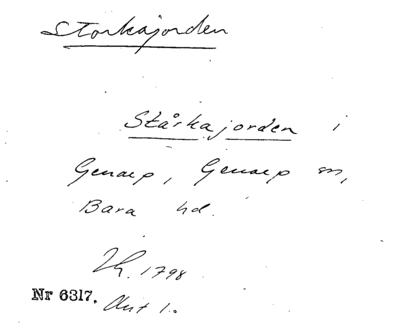 Storkajorden
Stårkajorden i
Genarp, Genarp sn,
Bara hd.
Lh. 1798
Nr 6317. Akt 1.